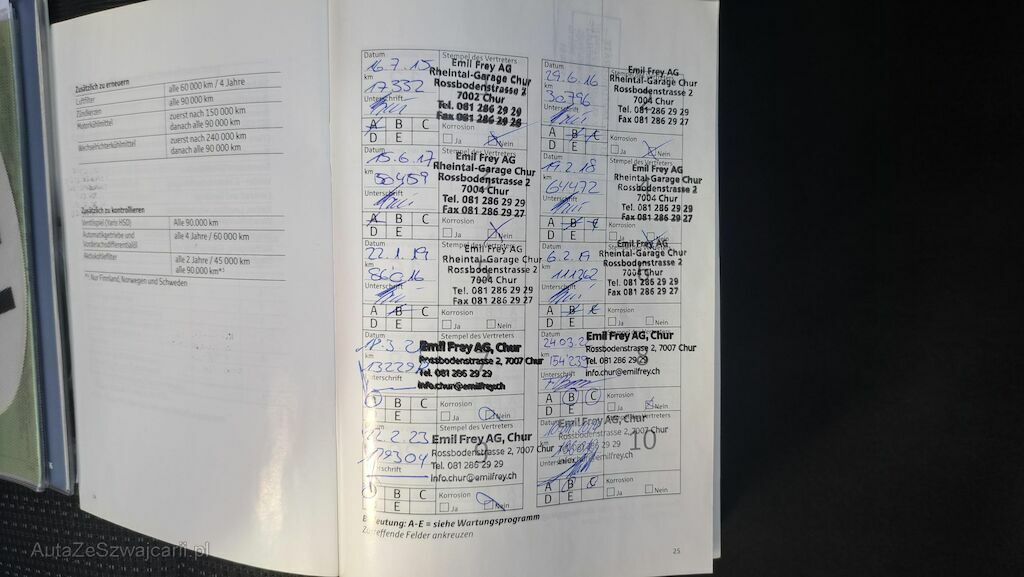 Zusätzlich zu erneuern
alle 60 000 km / 4 Jahre
Luftfilter
alle 90 000 km
Zündkerzen
Motorkühlmittel
zuerst nach 150 000 km
danach alle 90 000 km
Wechselrichterkühlmittel
zuerst nach 240 000 km
danach alle 90 000 km
Zusätzlich zu kontrollieren
Ventilspiel (Yaris HSD)
Alle 90.000 km
Automatikgetriebe und
Vorderachsdifferentialöl
alle 4 Jahre / 60 000 km
Aktivkohlefilter
alle 2 Jahre / 45 000 km
alle 90 000 km*¹
*¹ Nur Finnland, Norwegen und Schweden
Datum
Stempel des Vertreters
16.7.15
km
17332
Unterschrift
Emil Frey AG
Rheintal-Garage Chur
Rossbodenstrasse 2
7002 Chur
Tel. 081 286 29 29
Fax 081 286 29 26
A B C
D E
Korrosion
Ja Nein
29.6.16
km
30796
Unterschrift
Emil Frey AG
Rheintal-Garage Chur
Rossbodenstrasse 2
7004 Chur
Tel. 081 286 29 29
Fax 081 286 29 27
A B C
D E
Korrosion
Ja Nein
Datum
15.6.17
km
50459
Unterschrift
Emil Frey AG
Rheintal-Garage Chur
Rossbodenstrasse 2
7004 Chur
Tel. 081 286 29 29
Fax 081 286 29 27
A B C
D E
Korrosion
Ja Nein
Datum
Stempel des Vertreters
19.2.18
km
64472
Unterschrift
Emil Frey AG
Rheintal-Garage Chur
Rossbodenstrasse 2
7004 Chur
Tel. 081 286 29 29
Fax 081 286 29 27
A B C
D E
Korrosion
Ja
Datum
Stempel des Vertreters
22.1.19
km
86016
Unterschrift
Emil Frey AG
Rheintal-Garage Chur
Rossbodenstrasse 2
7004 Chur
Tel. 081 286 29 29
Fax 081 286 29 27
A B C
D E
Korrosion
Ja Nein
Datum
6.2.
km
111262
Unterschrift
Emil Frey AG
Rheintal-Garage Chur
Rossbodenstrasse 2
7004 Chur
Tel. 081 286 29 29
Fax 081 286 29 27
A B C
D E
Korrosion
Ja Nein
Datum
Stempel des Vertreters
km
Unterschrift
Emil Frey AG, Chur
Rossbodenstrasse 2, 7007 Chur
Tel. 081 286 29 29
info.chur@emilfrey.ch
B C
E
Korrosion
Ja Nein
Datum
24.03.2
km
154'239
Emil Frey AG, Chur
Rossbodenstrasse 2, 7007 Chur
Tel. 081 286 29 29
info.chur@emilfrey.ch
A B C
D E
Korrosion
Ja Nein
Datum
Stempel des Vertreters
.2.23
km
179304
Emil Frey AG, Chur
Rossbodenstrasse 2, 7007 Chur
Tel. 081 286 29 29
info.chur@emilfrey.ch
9
B C
E
Korrosion
Ja Nein
Datum
Stempel des Vertreters
km
Emil Frey AG, Chur
Rossbodenstrasse 2, 7007 Chur
10
A B C
D E
Korrosion
Ja Nein
Bedeutung: A-E = siehe Wartungsprogramm
Zutreffende Felder ankreuzen
25
AutaZeSzwajcarii.pl